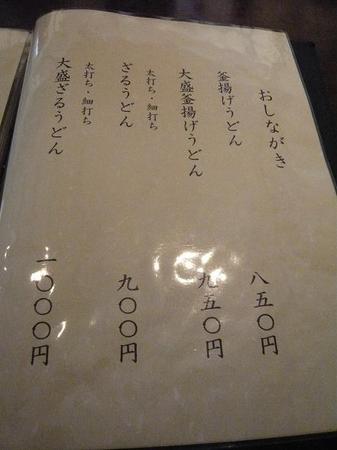 おしながき
釜揚げうどん
八五〇円
大盛釜揚げうどん
九五〇円
太打ち・細打ち
ざるうどん
九〇〇円
太打ち・細打ち
大盛ざるうどん
一〇〇〇円